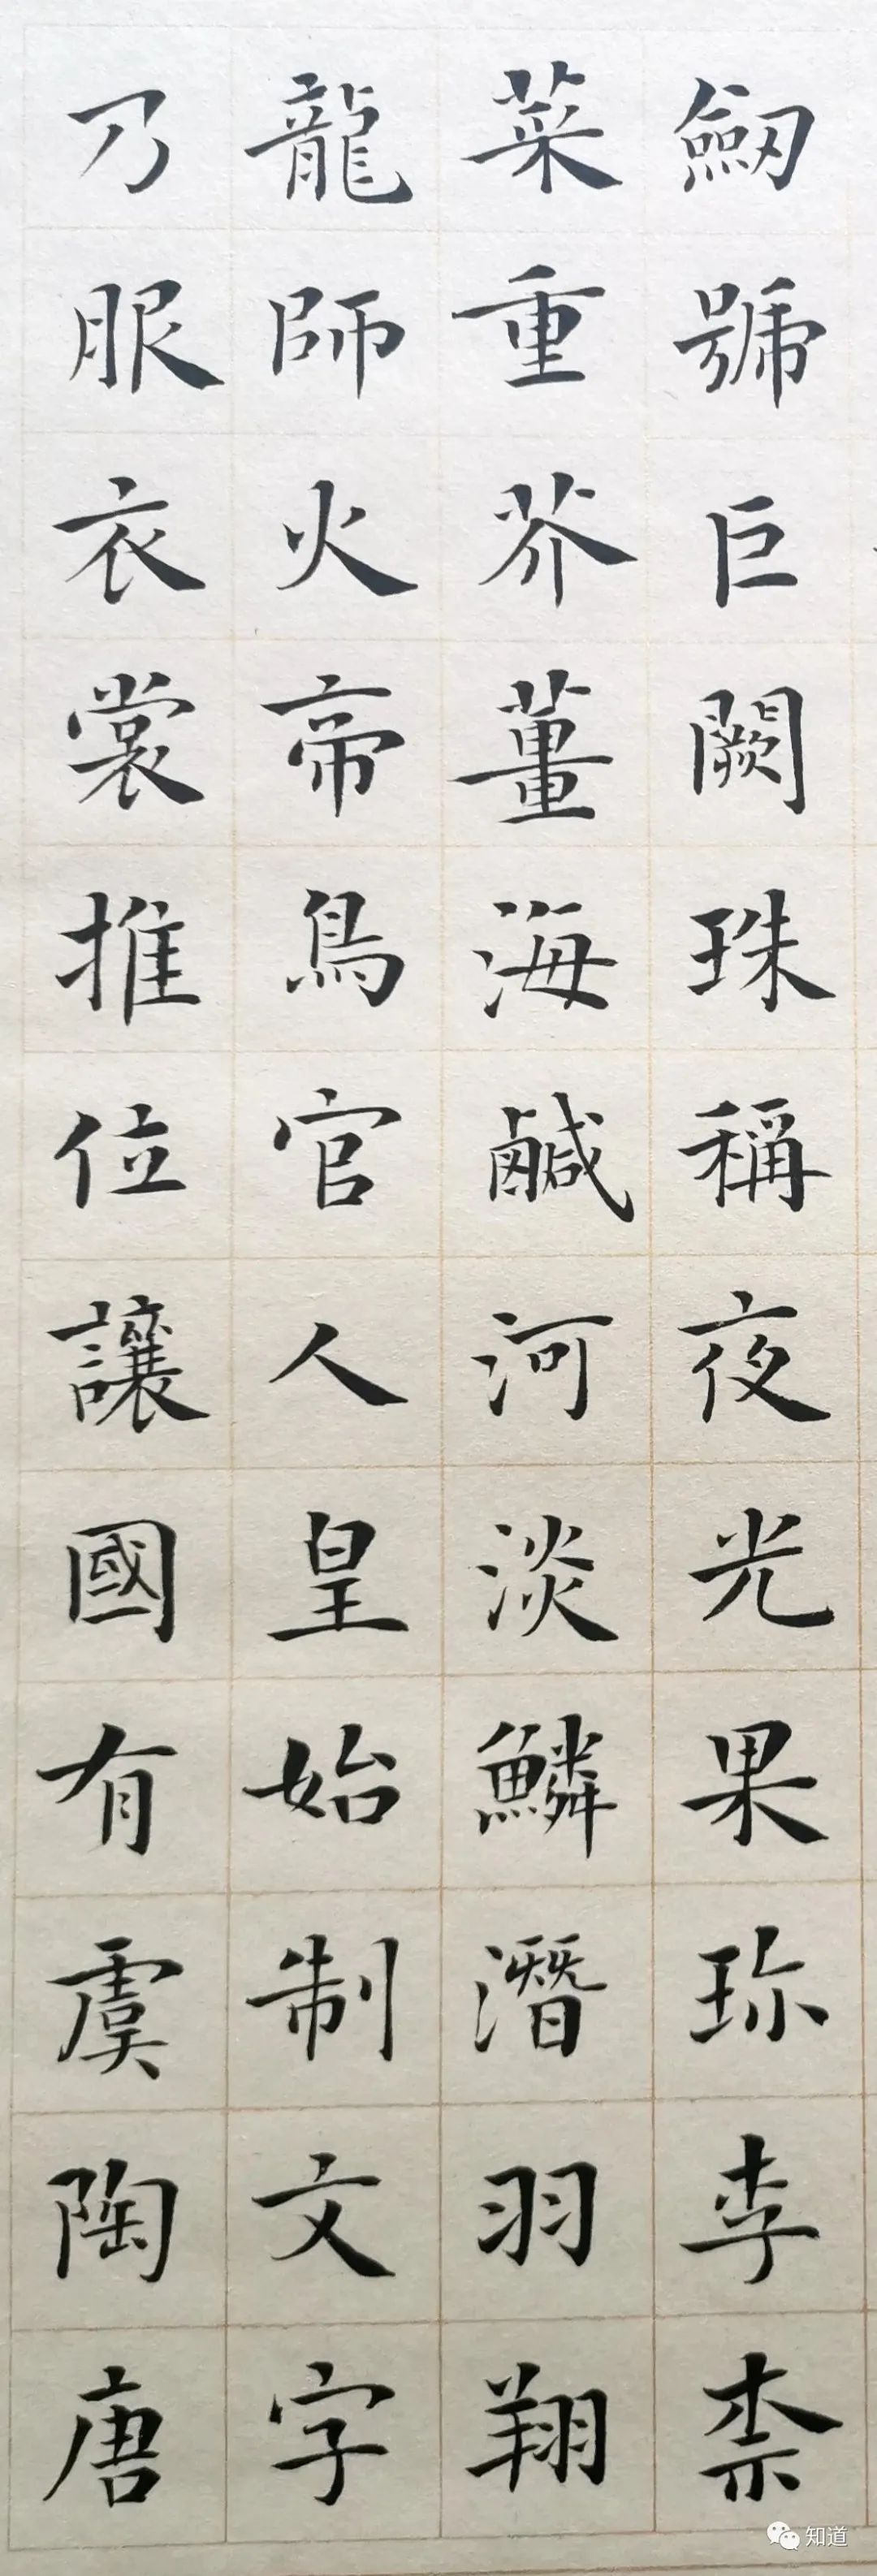 劒號巨闕珠稱夜光果珎李柰
菜重芥薑海鹹河淡鱗潛羽翔
龍師火帝鳥官人皇始制文字
乃服衣裳推位讓國有虞陶唐
知道